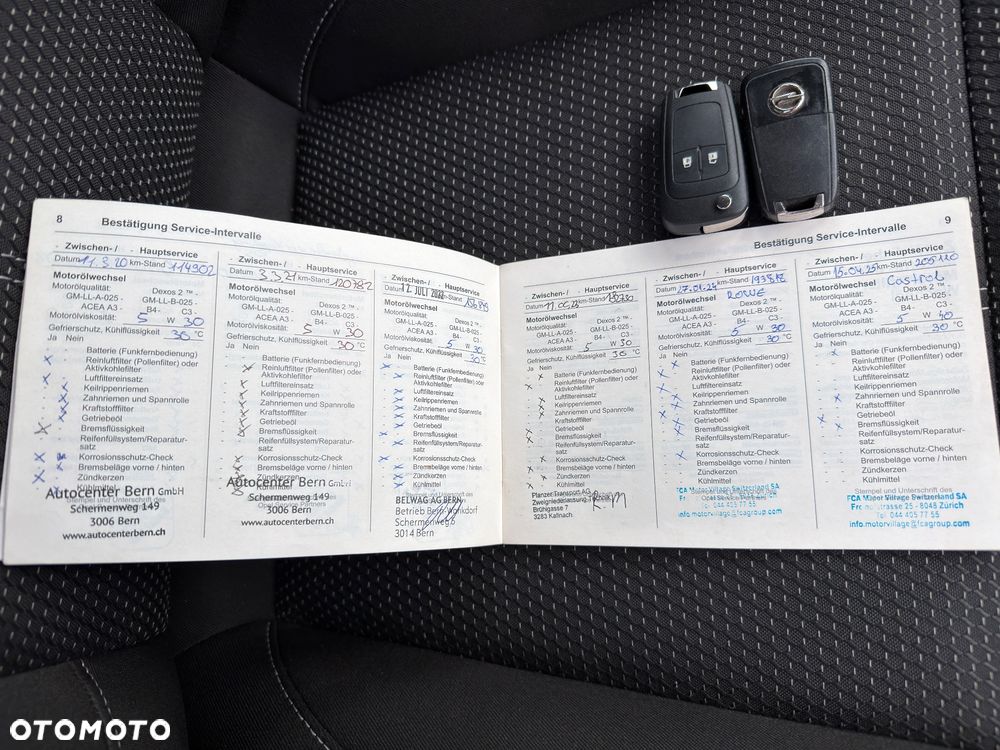 8 Bestätigung Service-Intervalle
- Zwischen-/ - Hauptservice
Datum 11.3.20 km-Stand 114902
Motorölwechsel
Motorölqualität: Dexos 2 ™ -
GM-LL-A-025 - GM-LL-B-025 -
ACEA A3 - B4- C3 -
Motorölviskosität: 5 W 30
Gefrierschutz, Kühlflüssigkeit 30 °C
Ja Nein
Batterie (Funkfernbedienung)
Reinluftfilter (Pollenfilter) oder
Aktivkohlefilter
Luftfiltereinsatz
Keilrippenriemen
Zahnriemen und Spannrolle
Kraftstofffilter
Getriebeöl
Bremsflüssigkeit
Reifenfüllsystem/Reparatur-
satz
Korrosionsschutz-Check
Bremsbeläge vorne / hinten
Zündkerzen
Kühlmittel
Autocenter Bern GmbH
Stempel und Unterschrift des
Schermenweg 149
3006 Bern
www.autocenterbern.ch
- Zwischen-/ - Hauptservice
Datum 3.3.21 km-Stand 120782
Motorölwechsel
Motorölqualität: Dexos 2 ™ -
GM-LL-A-025 - GM-LL-B-025 -
ACEA A3 - B4- C3 -
Motorölviskosität: 5 W 30
Gefrierschutz, Kühlflüssigkeit 30 °C
Ja Nein
Batterie (Funkfernbedienung)
Reinluftfilter (Pollenfilter) oder
Aktivkohlefilter
Luftfiltereinsatz
Keilrippenriemen
Zahnriemen und Spannrolle
Kraftstofffilter
Getriebeöl
Bremsflüssigkeit
Reifenfüllsystem/Reparatur-
satz
Korrosionsschutz-Check
Bremsbeläge vorne / hinten
Zündkerzen
Kühlmittel
Autocenter Bern GmbH
Schermenweg 149
3006 Bern
www.autocenterbern.ch
- Zwischen-/ - Hauptservice
Datum 12. JULI 2022 km-Stand
Motorölwechsel
Motorölqualität: Dexos 2 ™ -
GM-LL-A-025 - GM-LL-B-025 -
ACEA A3 - B4- C3 -
Motorölviskosität: 5 W 30
Gefrierschutz, Kühlflüssigkeit 30 °C
Ja Nein
Batterie (Funkfernbedienung)
Reinluftfilter (Pollenfilter) oder
Aktivkohlefilter
Luftfiltereinsatz
Keilrippenriemen
Zahnriemen und Spannrolle
Kraftstofffilter
Getriebeöl
Bremsflüssigkeit
Reifenfüllsystem/Reparatur-
satz
Korrosionsschutz-Check
Bremsbeläge vorne / hinten
Zündkerzen
Kühlmittel
BELWAG AG BERN
Betrieb Bern
Schermenweg 5
3014 Bern
Bestätigung Service-Intervalle 9
- Zwischen-/ - Hauptservice
Datum km-Stand
Motorölwechsel
Motorölqualität: Dexos 2 ™ -
GM-LL-A-025 - GM-LL-B-025 -
ACEA A3 - B4- C3 -
Motorölviskosität: 5 W 30
Gefrierschutz, Kühlflüssigkeit 30 °C
Ja Nein
Batterie (Funkfernbedienung)
Reinluftfilter (Pollenfilter) oder
Aktivkohlefilter
Luftfiltereinsatz
Keilrippenriemen
Zahnriemen und Spannrolle
Kraftstofffilter
Getriebeöl
Bremsflüssigkeit
Reifenfüllsystem/Reparatur-
satz
Korrosionsschutz-Check
Bremsbeläge vorne / hinten
Zündkerzen
Kühlmittel
Planzer Transport AG
Zweigniederlassung
Brühlgasse 7
3283 Kallnach
- Zwischen-/ - Hauptservice
Datum km-Stand
Motorölwechsel ROWE
Motorölqualität: Dexos 2 ™ -
GM-LL-A-025 - GM-LL-B-025 -
ACEA A3 - B4- C3 -
Motorölviskosität: 5 W 30
Gefrierschutz, Kühlflüssigkeit 30 °C
Ja Nein
Batterie (Funkfernbedienung)
Reinluftfilter (Pollenfilter) oder
Aktivkohlefilter
Luftfiltereinsatz
Keilrippenriemen
Zahnriemen und Spannrolle
Kraftstofffilter
Getriebeöl
Bremsflüssigkeit
Reifenfüllsystem/Reparatur-
satz
Korrosionsschutz-Check
Bremsbeläge vorne / hinten
Zündkerzen
Kühlmittel
FCA Motor Village Switzerland SA
Tel. 044 405 77 55
info.motorvillage@fcagroup.com
- Zwischen-/ - Hauptservice
Datum 15.04.25 km-Stand 205120
Motorölwechsel Castrol
Motorölqualität: Dexos 2 ™ -
GM-LL-A-025 - GM-LL-B-025 -
ACEA A3 - B4- C3 -
Motorölviskosität: 5 W 40
Gefrierschutz, Kühlflüssigkeit 30 °C
Ja Nein
Batterie (Funkfernbedienung)
Reinluftfilter (Pollenfilter) oder
Aktivkohlefilter
Luftfiltereinsatz
Keilrippenriemen
Zahnriemen und Spannrolle
Kraftstofffilter
Getriebeöl
Bremsflüssigkeit
Reifenfüllsystem/Reparatur-
satz
Korrosionsschutz-Check
Bremsbeläge vorne / hinten
Zündkerzen
Kühlmittel
Stempel und Unterschrift des
FCA Motor Village Switzerland SA
25 - 8048 Zürich
Tel. 044 405 77 55
info.motorvillage@fcagroup.com
OTOMOTO